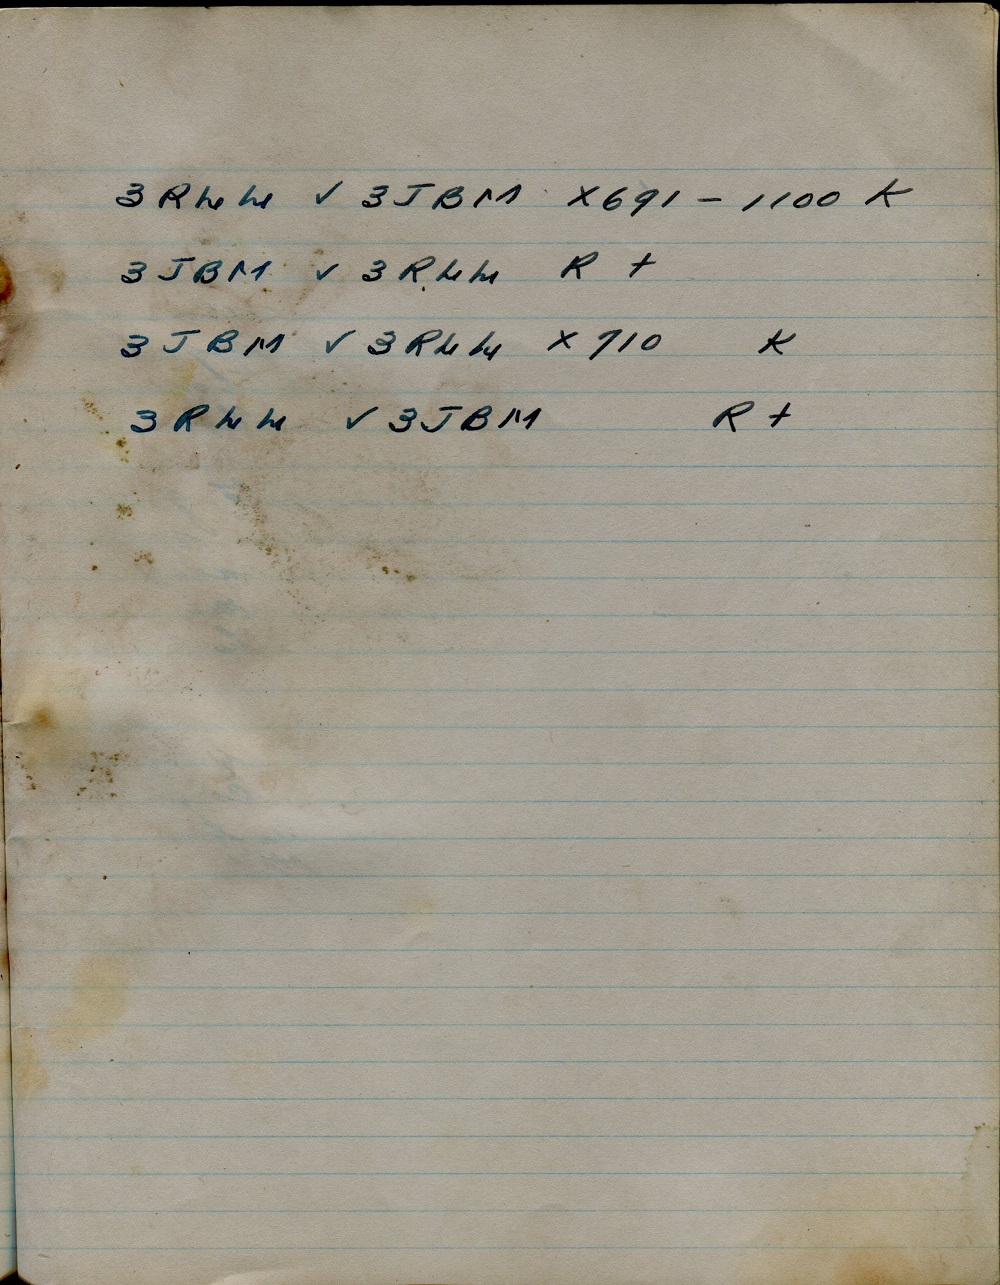 3RHH V 3JBM X691 - 1100 K
3JBM V 3RHH R +
3JBM V 3RHH X 710 K
3RHH V 3JBM R +